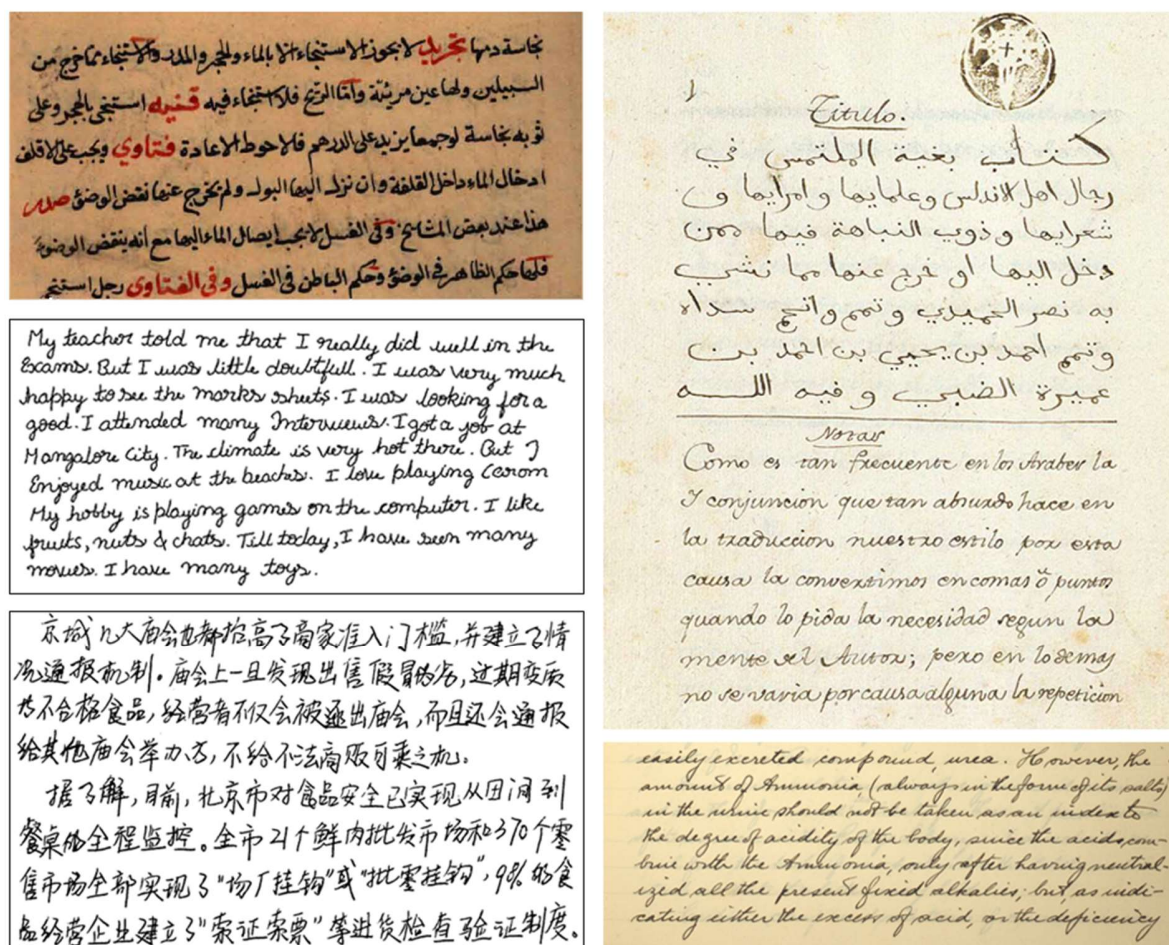 نجاسة دمها تجريد لا يجوز الاستنجاء الا بالماء والحجر والمدر والاستنجاء مما خرج من
السبيلين ولها عين مرئية واما الريح فلا استنجاء فيه قنيه استنجى بالحجر وعلى
ثوبه نجاسة لو جمعها يزيد على الدرهم فالاحوط الاعادة فتاوي ويجب على الاقلف
ادخال الماء داخل القلفة وان نزل اليها البول ولم يخرج عنها نقض الوضوء
هذا عند بعض المشايخ وفى الغسل لا يجب ايصال الماء اليها مع انه ينقض الوضوء
حكم الظاهر فى الوضوء وحكم الباطن فى الغسل وفى الفتاوى رجل استنجى
My teacher told me that I really did well in the
Exams. But I was little doubtfull. I was very much
happy to see the marks sheets. I was looking for a
good. I attended many Interviews. I got a job at
Mangalore City. The climate is very hot there. But I
Enjoyed music at the beaches. I love playing Cerom
My hobby is playing games on the computer. I like
fruits, nuts & chats. Till today, I have seen many
movies. I have many toys.
京城几大庙会也都抬高了商家准入门槛,并建立了情
况通报机制。庙会上一旦发现出售假冒伪劣,过期变质
等不合格食品,经营者不仅会被逐出庙会,而且还会通报
给其他庙会举办方,不给不法商贩可乘之机。
据了解,目前,北京市对食品安全已实现从田间到
餐桌的全程监控。全市21个鲜肉批发市场和370个零
售市场全部实现了"场厂挂钩"或"批零挂钩",98%的食
品经营企业建立了"索证索票"等进货检查验证制度。
Titulo.
كتاب بغية الملتمس في
رجال اهل الاندلس وعلمايها وامرايها و
شعرايها وذوي النباهة فيها ممن
دخل اليها او خرج عنها مما نشي
به نصر الحميدي وتمم وانجم سداه
وتمم احمد بن يحيي بن احمد بن
عميرة الضبي وفيه اللــه
Notas
Como es tan frecuente en los Arabes la
Y conjuncion que tan absurdo hace en
la traduccion nuestro estilo por esta
causa la convertimos en comas ö puntos
quando lo pida la necesidad segun la
mente del Autor; pero en lo demas
no se varia por causa alguna la repeticion
easily excreted compound, urea. However, the
amount of Ammonia, (always in the form of its salts)
in the urine should not be taken as an index to
the degree of acidity of the body, since the acids com-
bine with the Ammonia, only after having neutral-
ized all the present fixed alkalies; but, as indi-
cating either the excess of acid, or the deficiency